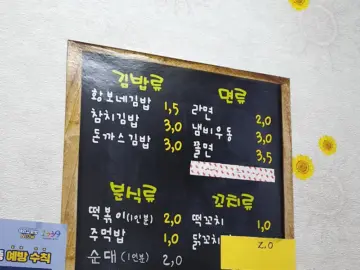 김밥류
황보네김밥 1,5
참치김밥 3,0
돈까스김밥 3,0
면류
라면 2,0
냄비우동 3,0
쫄면 3,5
분식류
떡볶이(1인분) 2,0
주먹밥 1,0
순대(1인분) 2,0
꼬치류
떡꼬치 1,0
닭꼬치
2.0
예방 수칙